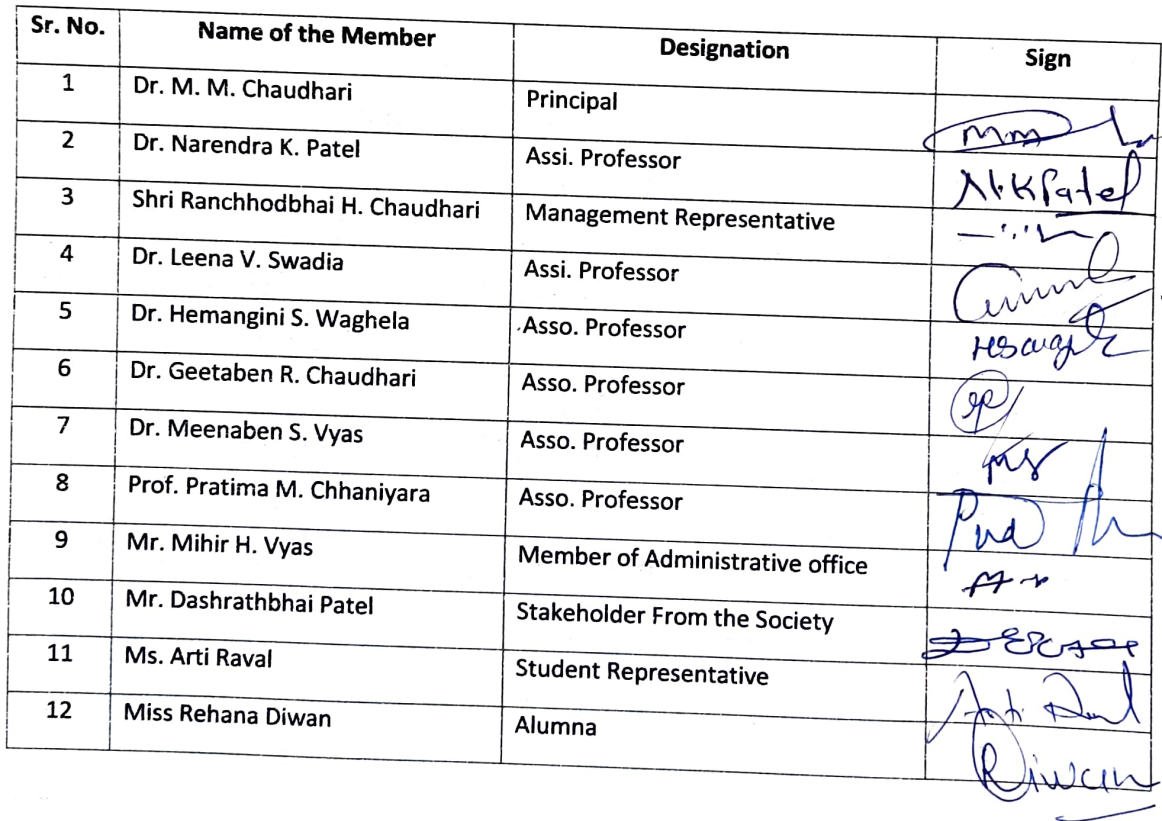 Sr. No. Name of the Member Designation Sign
1 Dr. M. M. Chaudhari Principal
2 Dr. Narendra K. Patel Assi. Professor N.K.Patel
3 Shri Ranchhodbhai H. Chaudhari Management Representative
4 Dr. Leena V. Swadia Assi. Professor
5 Dr. Hemangini S. Waghela Asso. Professor
6 Dr. Geetaben R. Chaudhari Asso. Professor
7 Dr. Meenaben S. Vyas Asso. Professor
8 Prof. Pratima M. Chhaniyara Asso. Professor
9 Mr. Mihir H. Vyas Member of Administrative office
10 Mr. Dashrathbhai Patel Stakeholder From the Society
11 Ms. Arti Raval Student Representative
12 Miss Rehana Diwan Alumna